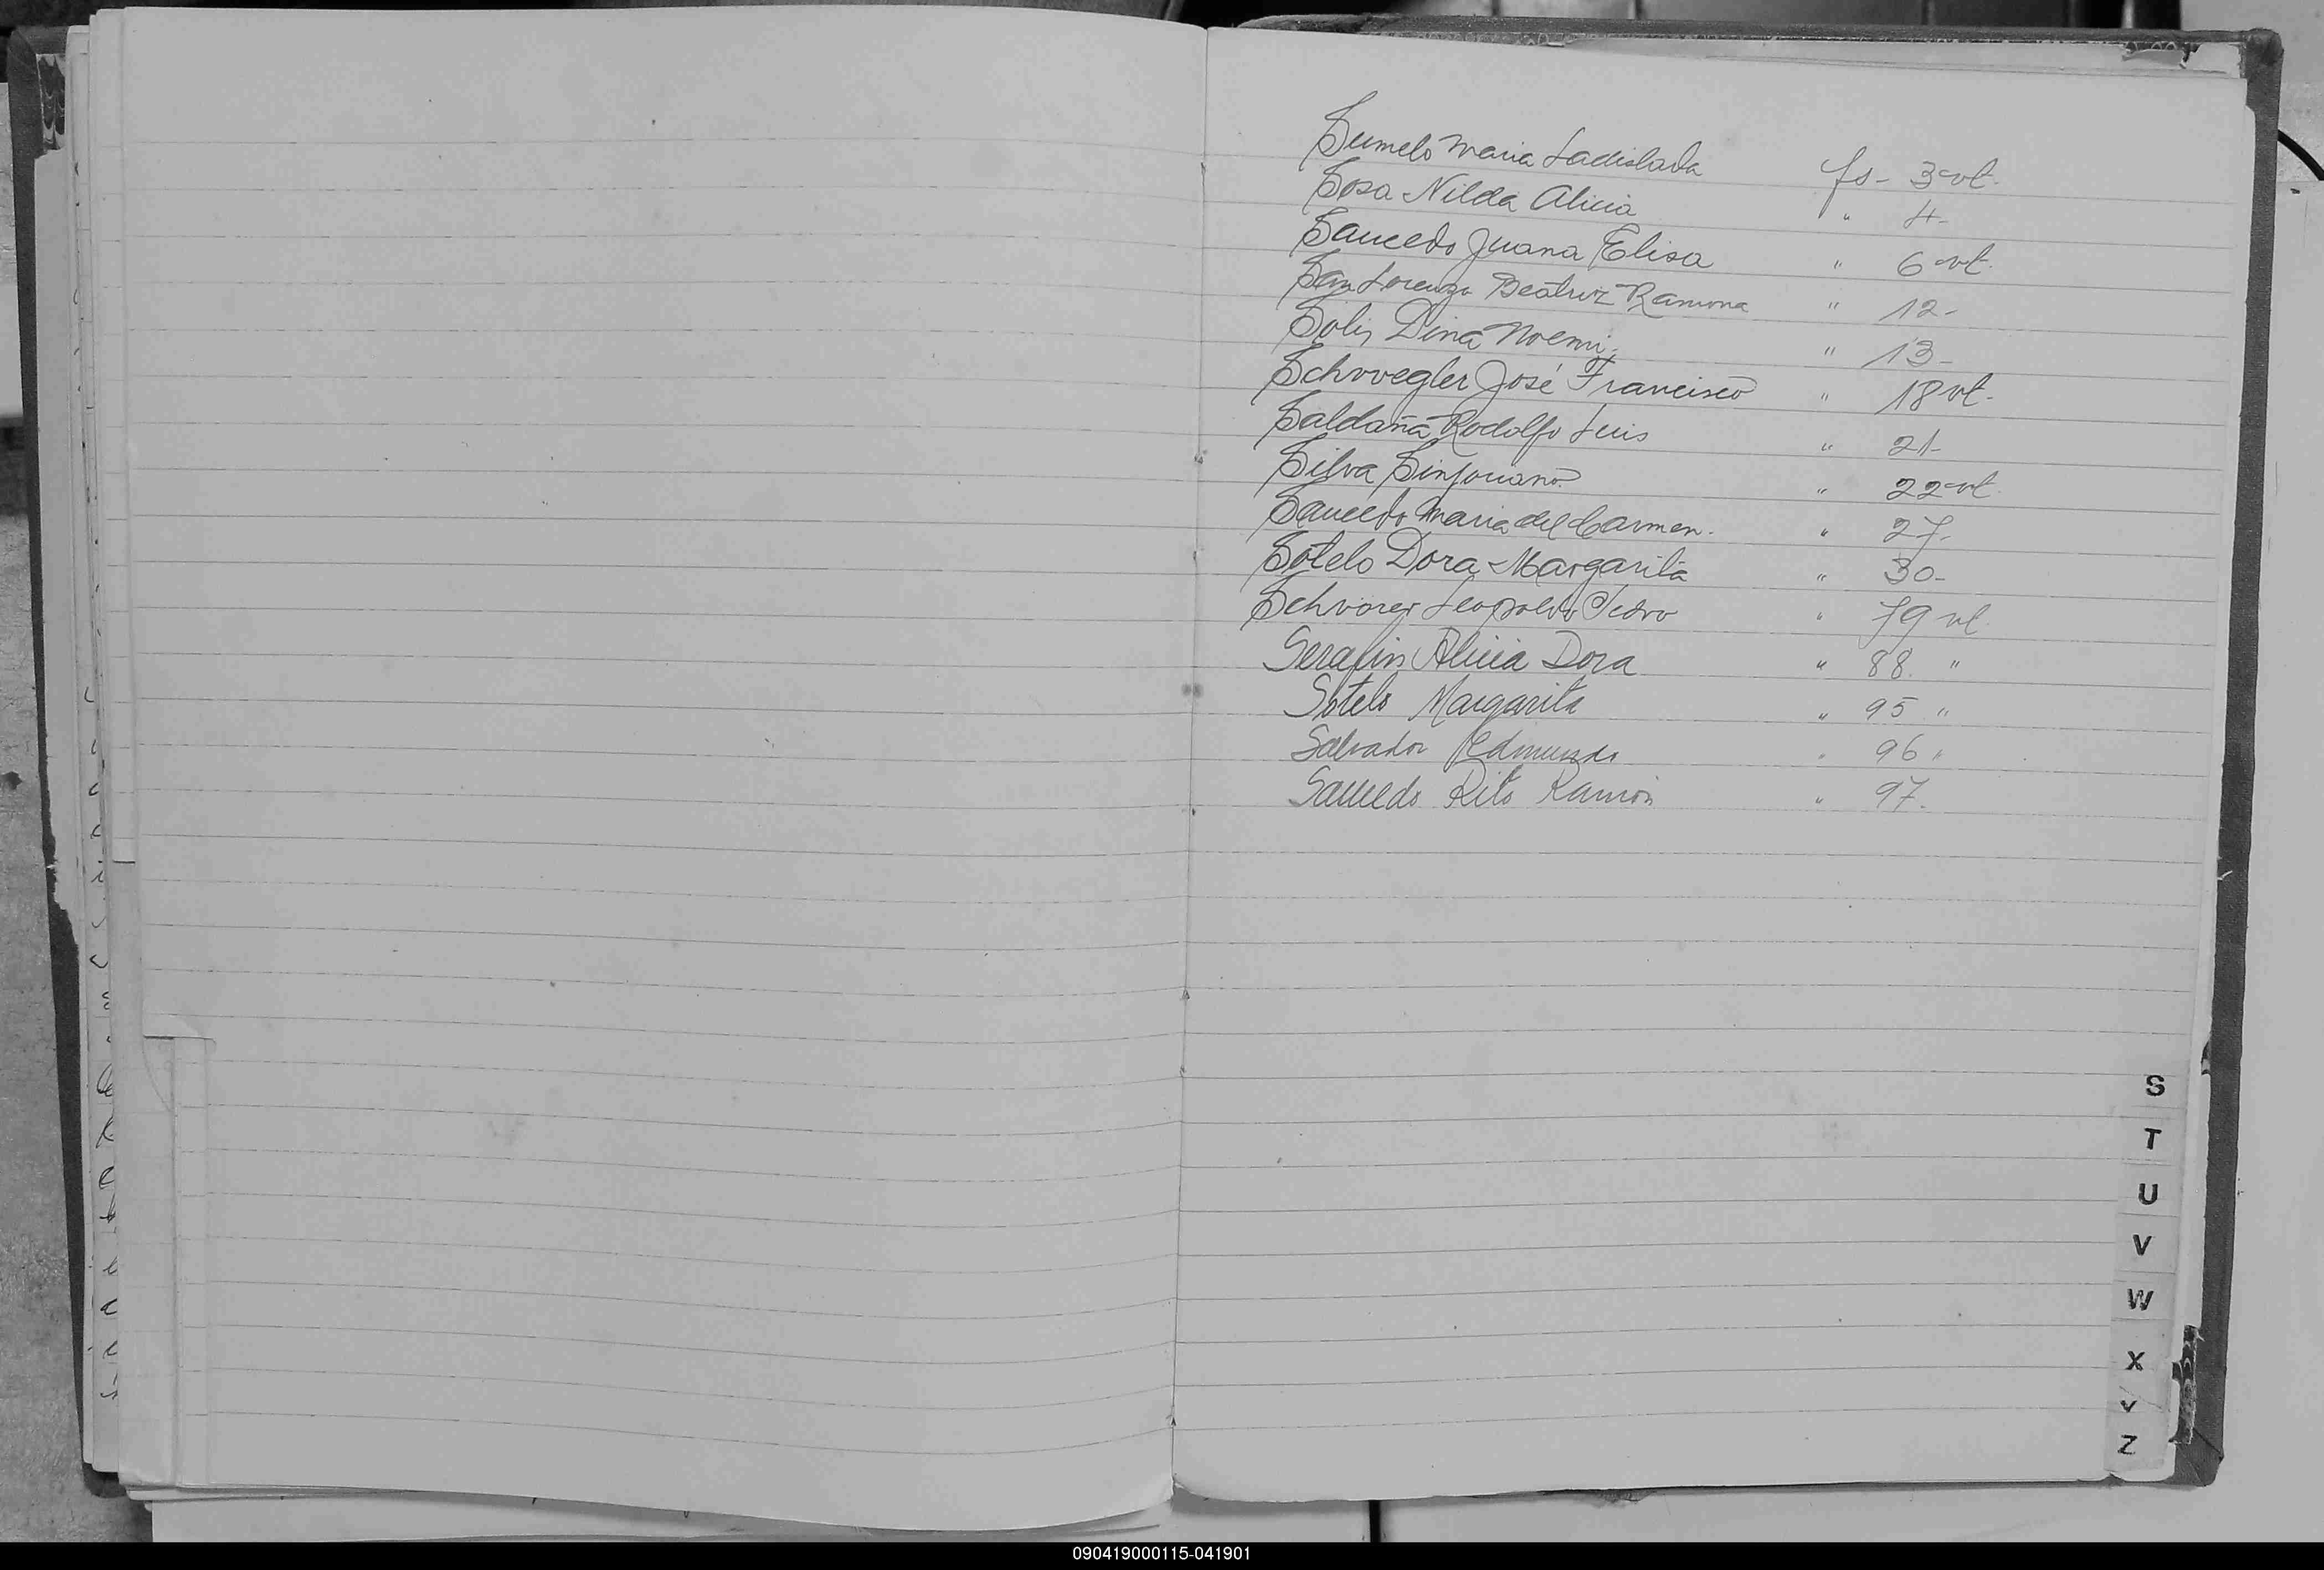 Sumelo Maria Ladislada fs- 3 vt.
Sosa Nilda Alicia " 4-
Saucedo Juana Elisa " 6 vt.
San Lorenzo Beatriz Ramona " 12-
Solis Dina Noemi. " 13-
Schvvegler José Francisco " 18 vt.
Saldaña Rodolfo Luis " 21-
Silva Sinforiano " 22 vt.
Saucedo Maria del Carmen. " 27-
Sotelo Dora Margarita " 30-
Leopoldo Pedro " 79 vt.
Serafin Alicia Dora " 88. "
Sotelo Margarita " 95 "
Salvador Edmundo " 96 "
Saucedo Rito Ramón " 97.
S
T
U
V
W
X
Y
Z
090419000115-041901